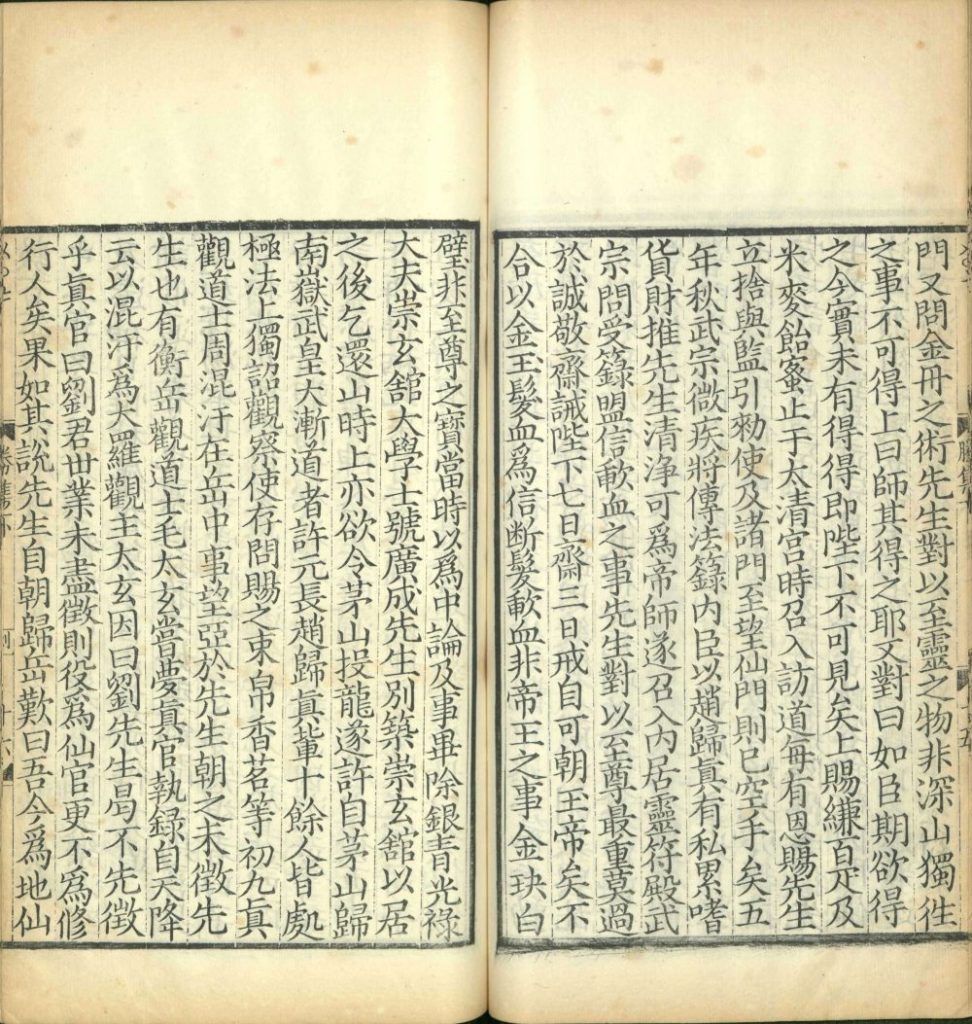 門又問金丹之術先生對以至靈之物非深山獨徃
之事不可得上曰師其得之耶又對曰如臣期欲得
之今實未有得得即陛下不可見矣上賜縑百疋及
米麥飴蜜止于太清宮時召入訪道每有恩賜先生
立捨與監引勑使及諸門至望仙門則已空手矣五
年秋武宗微疾將傳法籙内臣以趙歸眞有私累嗜
貨財推先生清淨可爲帝師遂召入内居靈符殿武
宗問受籙盟信歃血之事先生對以至尊最重莫過
於誠敬齋誡陛下七日齋三日戒自可朝玉帝矣不
合以金玉髮血爲信断髮歃血非帝王之事金玦白
璧非至尊之寶當時以爲中論及事畢除銀青光禄
大夫崇玄舘大學士號廣成先生别築崇玄舘以居
之後乞還山時上亦欲令茅山投龍遂許自茅山歸
南嶽武皇大漸道者許元長趙歸眞軰十餘人皆處
極法上獨詔觀察使存問賜之束帛香茗等初九眞
觀道士周混汙在岳中事望亞於先生朝之未徴先
生也有衡岳觀道士毛太玄甞夢眞官執録自天降
云以混汙爲大羅觀主太玄因曰劉先生曷不先徴
乎眞官曰劉君世業未盡徴則役爲仙官更不爲修
行人矣果如其説先生自朝歸岳歎曰吾今爲地仙